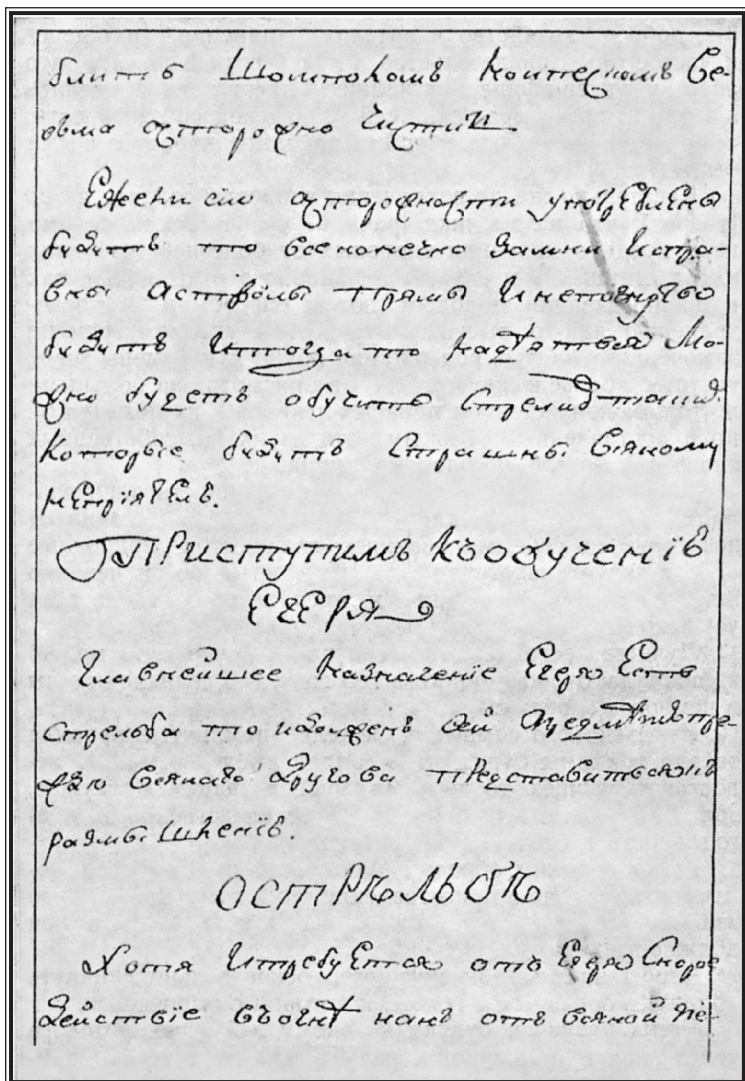 блитъ Шомполомъ Которымъ Ве-
сьма осторожно Чистить
Ежели сию осторожности употреблены
будутъ то все конечно Замки Исправ-
ны Астволы прямы И непогнуто
будитъ Итогда то надѣятся Мо-
жно будетъ обучить Стрелковъ такихъ
Которые будутъ Страшны Всякому
непрїятелю.
ПРИСТУПИМЪ КЪОБУЧЕНІЮ
ЕГЕРЯ
Главнейшее Назначенїе Егеря Есть
Стрельба то и должен Сей Предметъ пре-
жде Всякаго Другова Представить вонъ
размышленїе.
ОСТРѢЛЬБѢ
Хотя И требуется отъ Егеря Скорое
Действїе Въогнѣ какъ отъ Всякой Пе-